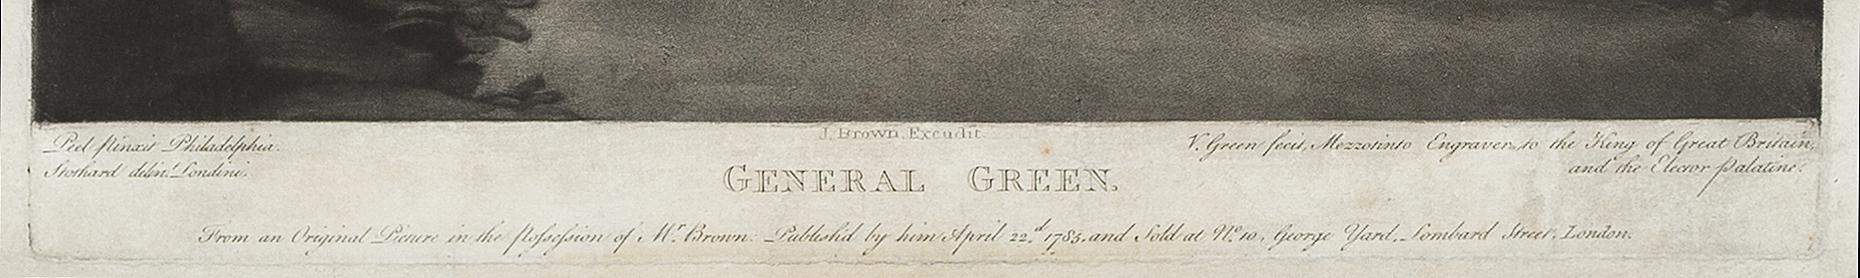 J. Brown, Excudit.
Peel pinxit Philadelphia.
Stothard delint. Londini.
V. Green fecit, Mezzotinto Engraver, to the King of Great Britain,
and the Elector Palatine.
GENERAL GREEN.
From an Original Picture in the Possession of Mr. Brown. Publish'd by him April 22.d 1785, and Sold at No. 10, George Yard, Lombard Street, London.